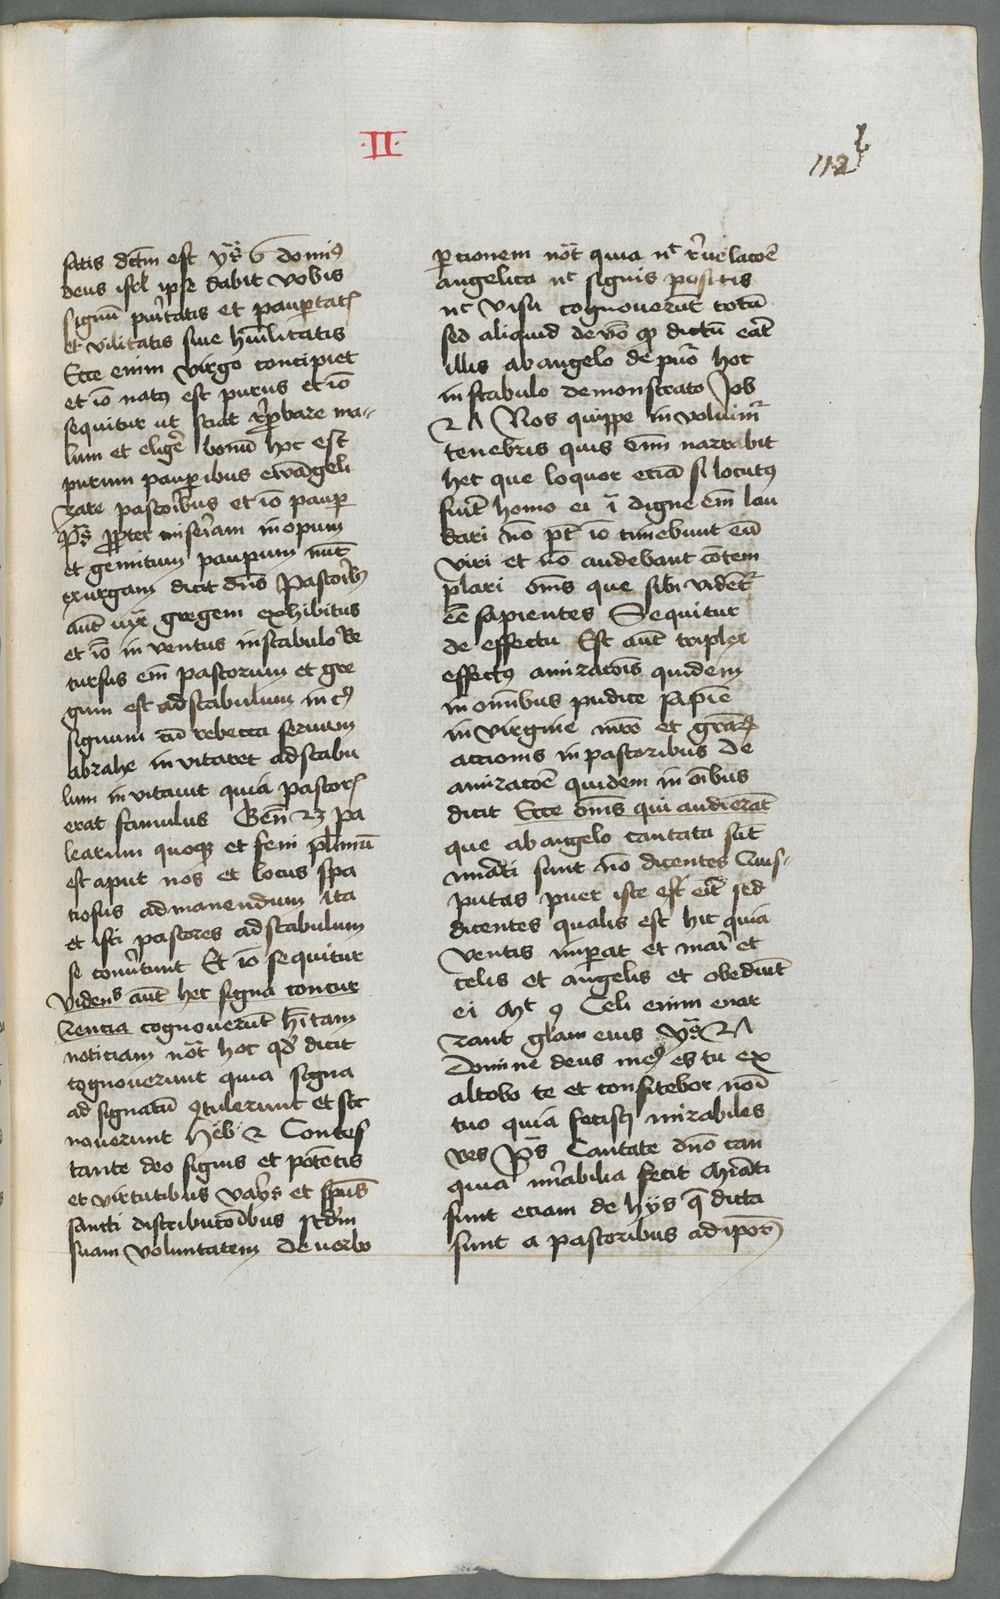 ·II·
112
satis dictm est ys̄ 6 domiꝰ
deus isrl ipse dabit vobis
signū pūritatis et paupertatꝭ
et vilitatis siue hūilitatis
Ecce enim virgo concipiet
et iō natꝰ est purus et iō
sequitur ut sciat rep̄bare ma-
lum et eligē bonū hoc est
purum pauperibus ewāgeli
zare pastoribus et iō pauper
ps̄ propter miseriam inopum
et gemitum pauperum nūc
exurgam dicit dn̄s Pastoribꝰ
aut̄ gregem exhibitus
et iō in ventus instabulo Re
cursus em̄ pastorum et gre
gum est ad stabulum in cꝰ
signum cū rebecca seruum
abrahe in vitaret ad stabu
lum in vitauit quia pastorꝭ
erat famulus Gen̄ 23 pa
learum quoqꝫ et feni plimū
est aput nos et locus spa
ciosus ad manendum ita
et isti pastores ad stabulum
se conūtunt Et iō sequitur
videns aut̄ hec signa concur
rencia cognouerūt h̄itam
noticiam nōt hoc qd̄ dicit
cognouerunt quia signa
ad signatū ꝯtulerunt et sic
nouerunt Heb 2 Contes
tante deo signis et potētis
et virtutibus varijs et spūs
sancti distributōibus scdm
suam voluntatem De uerbo
percionem nōt quia nc̄ reuelacōe
angelica nc̄ signis positis
nc̄ visu cognouerūt totū
sed aliquid de vō qd dictū eāt
illis ab angelo de pūo hoc
in stabulo demonstrato Job
2Λ Nos quippe in voluimꝰ
tenebris quis enim narrabit
hec que loquor eciā si locutꝰ
fūit homo ei ī digne em̄ lau
dari nō pt̄ iō timebunt eū
viri et nō audebant cōtem
plari om̄s que sibi vident̄
ēē sapientes Sequitur
de effectu Est aut̄ triplex
effectꝰ amiracōis quidem
in omnibus pudice sapiē
in virgine mr̄e et grāꝝ
accionis in pastoribus de
amiracōe quidem in oībus
dicit Ecce om̄s qui audierāt
que ab angelo cantata sūt
mirati sunt nō dicentes Quis-
putas puer iste est eit̄ sed
dicentes qualis est hic quia
ventis imperat et mari et
celis et angelis et obediūt
ei Mt 9 Celi enim enar
rant glam eius ys̄ 2Λ
Domine deus meꝰ es tu ex
altabo te et confitebor noī
tuo quia fecisti mirabiles
res ps̄ Cantate dn̄o can
quia mirabilia fecit Mirāti
sunt eciam de hijs q̄ dicta
sunt a pastoribus ad ipoꝝ